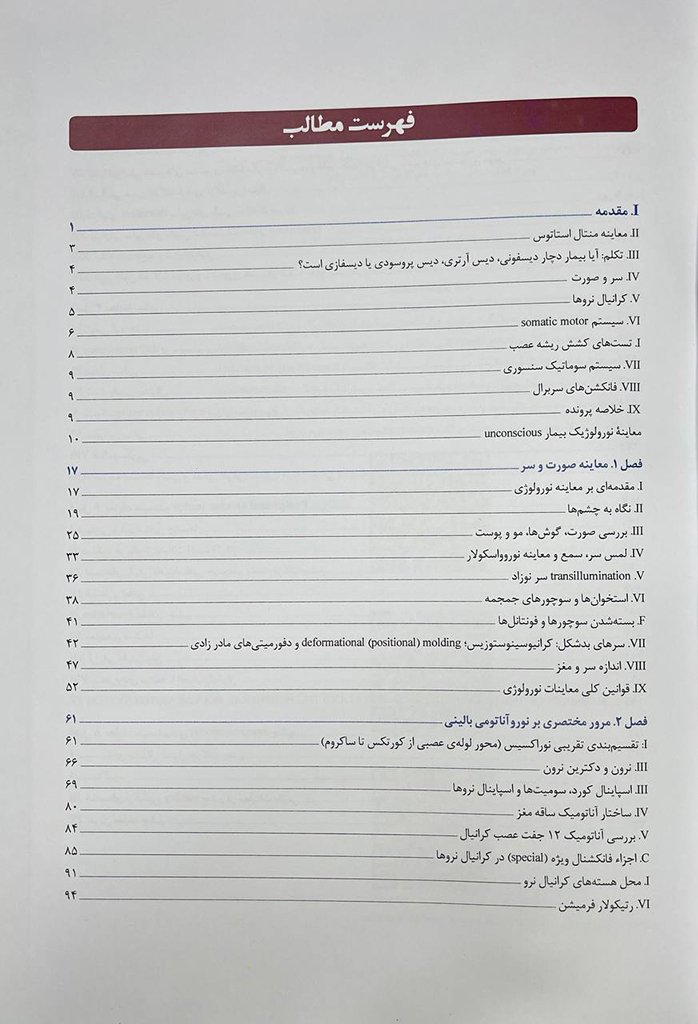 فهرست مطالب
I. مقدمه ۱
II. معاینه منتال استاتوس ۳
III. تکلم: آیا بیمار دچار دیسفونی، دیس آرتری، دیس پروسودی یا دیسفازی است؟ ۴
IV. سر و صورت ۴
V. کرانیال نروها ۵
VI. سیستم somatic motor ۶
I. تست‌های کشش ریشه عصب ۸
VII. سیستم سوماتیک سنسوری ۹
VIII. فانکشن‌های سربرال ۹
IX. خلاصه پرونده ۹
معاینهٔ نورولوژیک بیمار unconscious ۱۰
فصل ۱. معاینه صورت و سر ۱۷
I. مقدمه‌ای بر معاینه نورولوژی ۱۷
II. نگاه به چشم‌ها ۱۹
III. بررسی صورت، گوش‌ها، مو و پوست ۲۵
IV. لمس سر، سمع و معاینه نوروواسکولار ۳۳
V. transillumination سر نوزاد ۳۶
VI. استخوان‌ها و سوچورهای جمجمه ۳۸
F. بسته‌شدن سوچورها و فونتانل‌ها ۴۱
VII. سرهای بدشکل: کرانیوسینوستوزیس؛ deformational (positional) molding و دفورمیتی‌های مادر زادی ۴۲
VIII. اندازه سر و مغز ۴۷
IX. قوانین کلی معاینات نورولوژی ۵۲
فصل ۲. مرور مختصری بر نوروآناتومی بالینی ۶۱
I: تقسیم‌بندی تقریبی نوراکسیس (محور لوله‌ی عصبی از کورتکس تا ساکروم) ۶۱
III. نرون و دکترین نرون ۶۶
III. اسپاینال کورد، سومیت‌ها و اسپاینال نروها ۶۹
IV. ساختار آناتومیک ساقه مغز ۸۰
V. بررسی آناتومیک ۱۲ جفت عصب کرانیال ۸۴
C. اجزاء فانکشنال ویژه (special) در کرانیال نروها ۸۵
I. محل هسته‌های کرانیال نرو ۹۱
VI. رتیکولار فرمیشن ۹۴